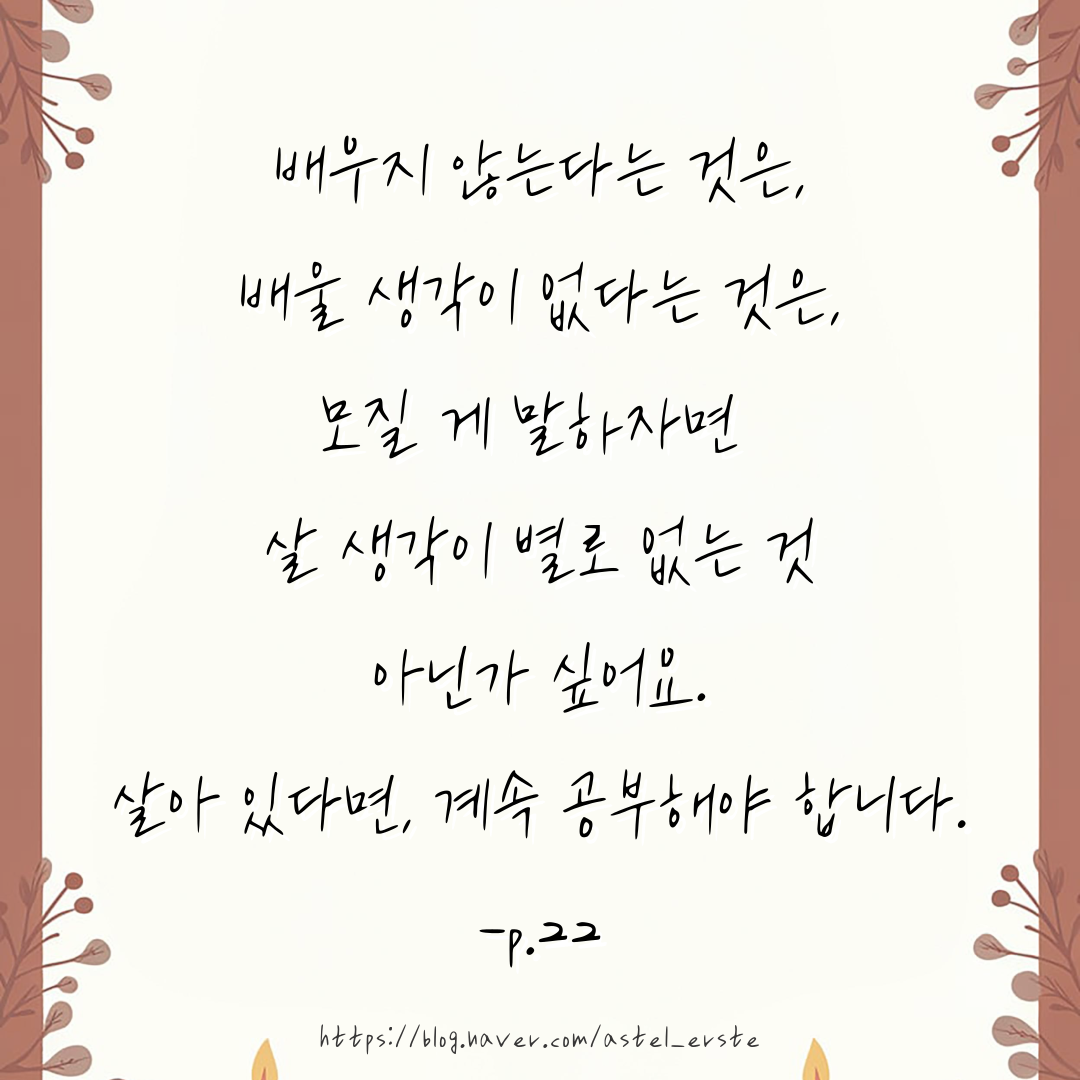 배우지 않는다는 것은,
배울 생각이 없다는 것은,
모질 게 말하자면
살 생각이 별로 없는 것
아닌가 싶어요.
살아 있다면, 계속 공부해야 합니다.
-p.22
https://blog.naver.com/astel_erste